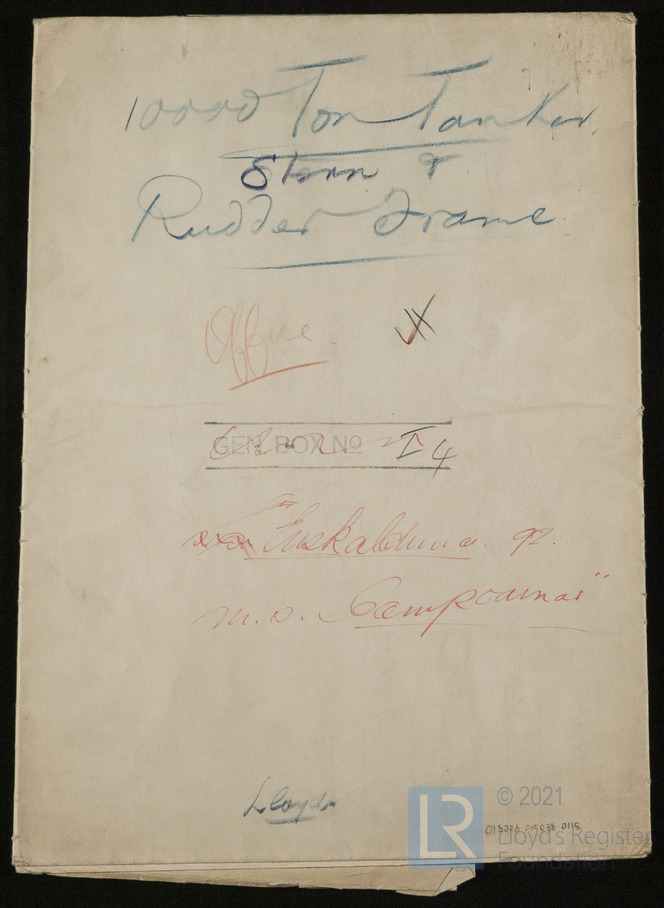 10000 Ton Tanker.
Stern &
Rudder Frame
Office
GEN. BOX Nº I 4
Euskalduna. 92.
m.s. Campoamor"
Lloyds
© 2021
LR Lloyd's Register
Foundation